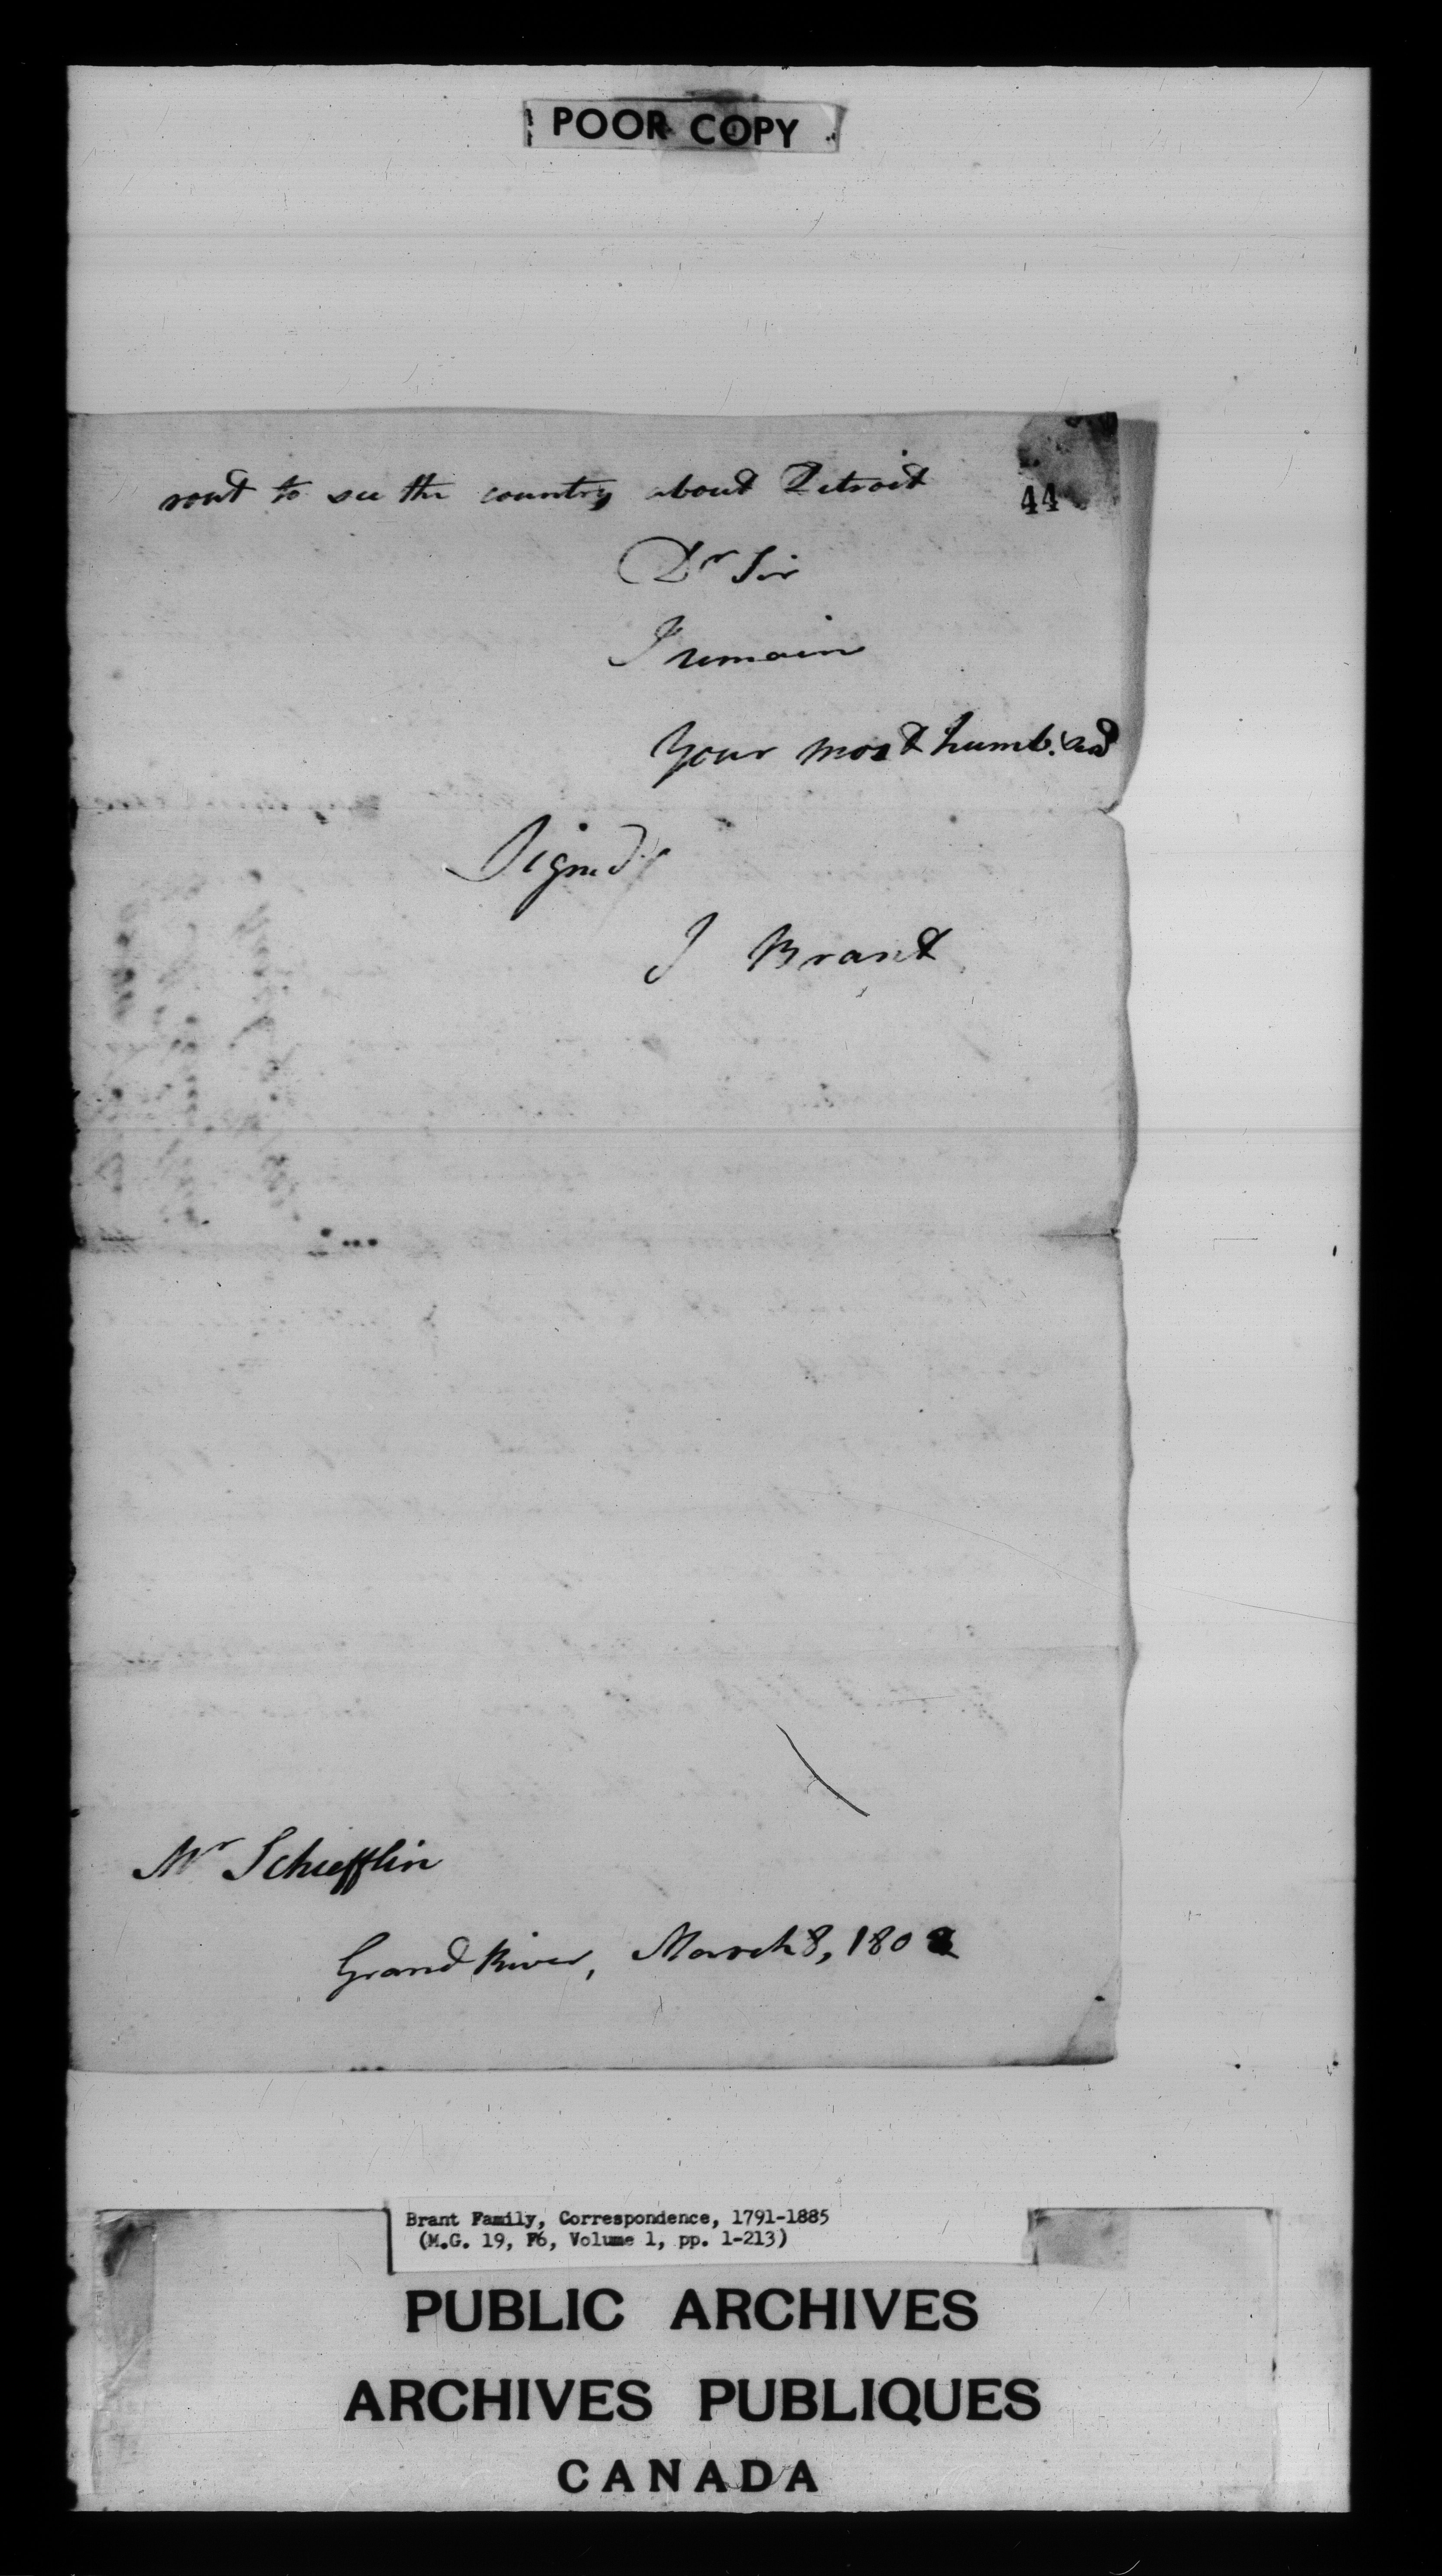 POOR COPY
44
rout to see the country about Detroit
Dr Sir
I remain
Your most humb.
Signed
J Brant
Mr Schiefflin
Grand River, March 8, 180
Brant Family, Correspondence, 1791-1885
(M.G. 19, F6, Volume 1, pp. 1-213)
PUBLIC ARCHIVES
ARCHIVES PUBLIQUES
CANADA